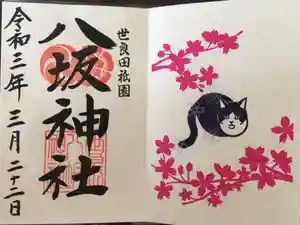 世良田祇園
八坂神社
令和三年三月二十二日